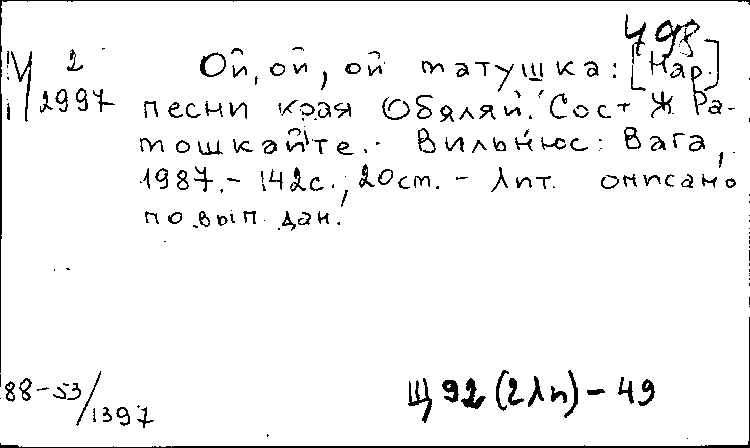 498
М 2
2997
Ой, ой, ой татушка: [Нар.]
песни края Обяляй. Сост Ж Ра-
тошкайте. - Вильнюс: Вага,
1987. - 142с.; 20см. - Лит. описано
по вып дан.
88-53/1397
Щ 92 (2Лп) - 49